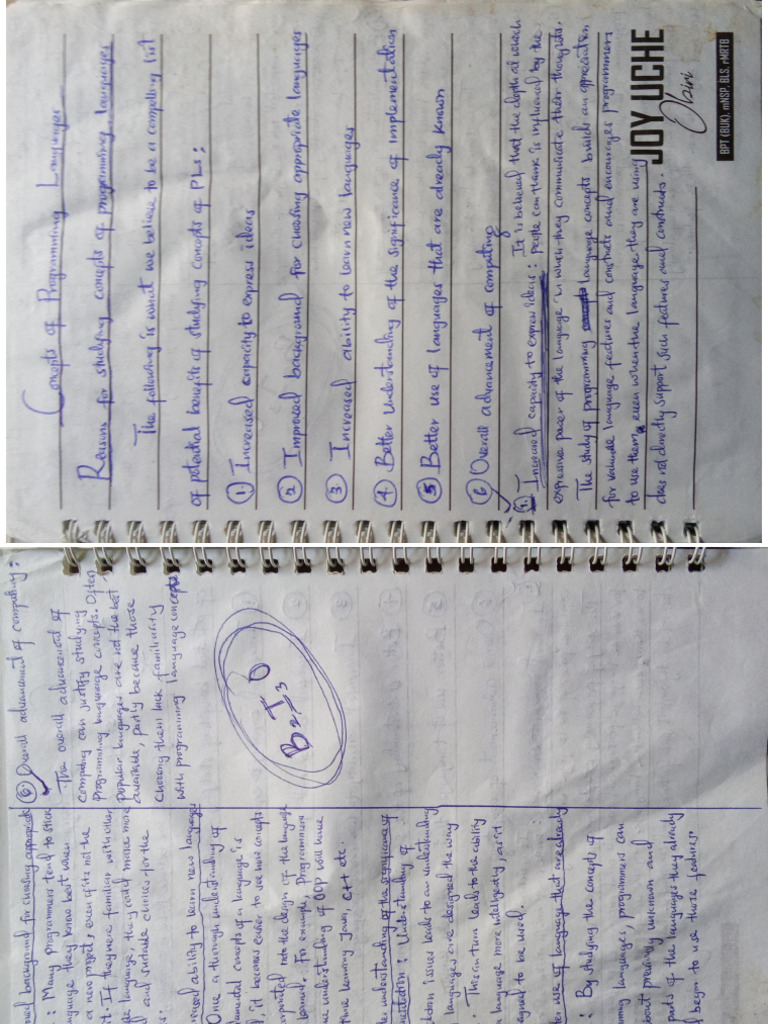 Concepts of Programming Languages
Reasons for studying concepts of programming languages
The following is what we believe to be a compelling list
of potential benefits of studying concepts of PLs:
① Increased capacity to express ideas
② Improved background for choosing appropriate languages
③ Increased ability to learn new languages
④ Better Understanding of the significance of implementation
⑤ Better use of languages that are already known
⑥ Overall advancement of computing
① Increased capacity to express ideas: It is believed that the depth at which
people can think is influenced by the
expressive power of the language in which they communicate their thoughts.
The study of programming language concepts builds an appreciation
for valuable language features and constructs and encourages programmers
to use them, even when the language they are using
does not directly support such features and constructs.
JOY UCHE
Obiri
BPT (BUK), mNSP, BLS, rMRTB
ved background for choosing appropriate
: Many programmers tend to stick
guage they know best when
a new project, even if its not the
it. If they were familiar with other
language, they could make more
and suitable choices for the
reased ability to learn new languages
Once a thorough understanding of
amental concepts of a language is
d, it becomes easier to see how concepts
orporated into the design of the language
learned. For example, Programmers
he understanding of OOP will have
time learning java, C++ etc.
er understanding of the significance of
mentation: Understanding of
ntation issues leads to an understanding
languages are designed the way
. This in turn leads to the ability
language more intelligently, as it
signed to be used.
er use of language that are already
: By studying the concepts of
ming languages, programmers can
about previously unknown and
parts of the languages they already
begin to use those features.
⑥ Overall advancement of computing:
The overall advancement of
computing can justify studying
Programming language concepts. Often,
popular languages are not the best
available, partly because those
choosing them lack familiarity
with programming language concepts